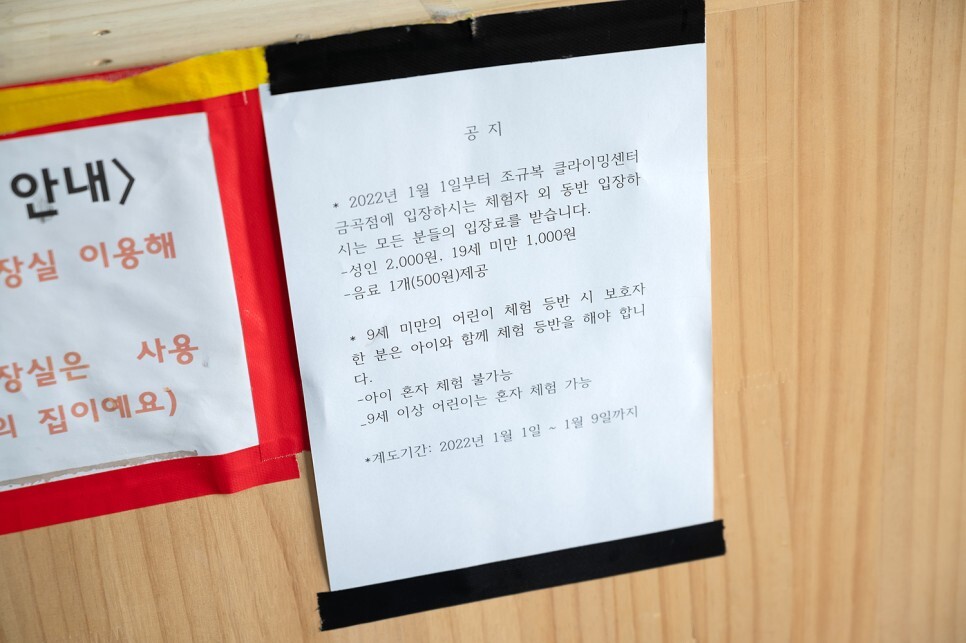 안내>
장실 이용해
장실은 사용
의 집이예요)
공 지
* 2022년 1월 1일부터 조규복 클라이밍센터
금곡점에 입장하시는 체험자 외 동반 입장하
시는 모든 분들의 입장료를 받습니다.
-성인 2,000원, 19세 미만 1,000원
-음료 1개(500원)제공
* 9세 미만의 어린이 체험 등반 시 보호자
한 분은 아이와 함께 체험 등반을 해야 합니
다.
-아이 혼자 체험 불가능
-9세 이상 어린이는 혼자 체험 가능
*계도기간: 2022년 1월 1일 ~ 1월 9일까지